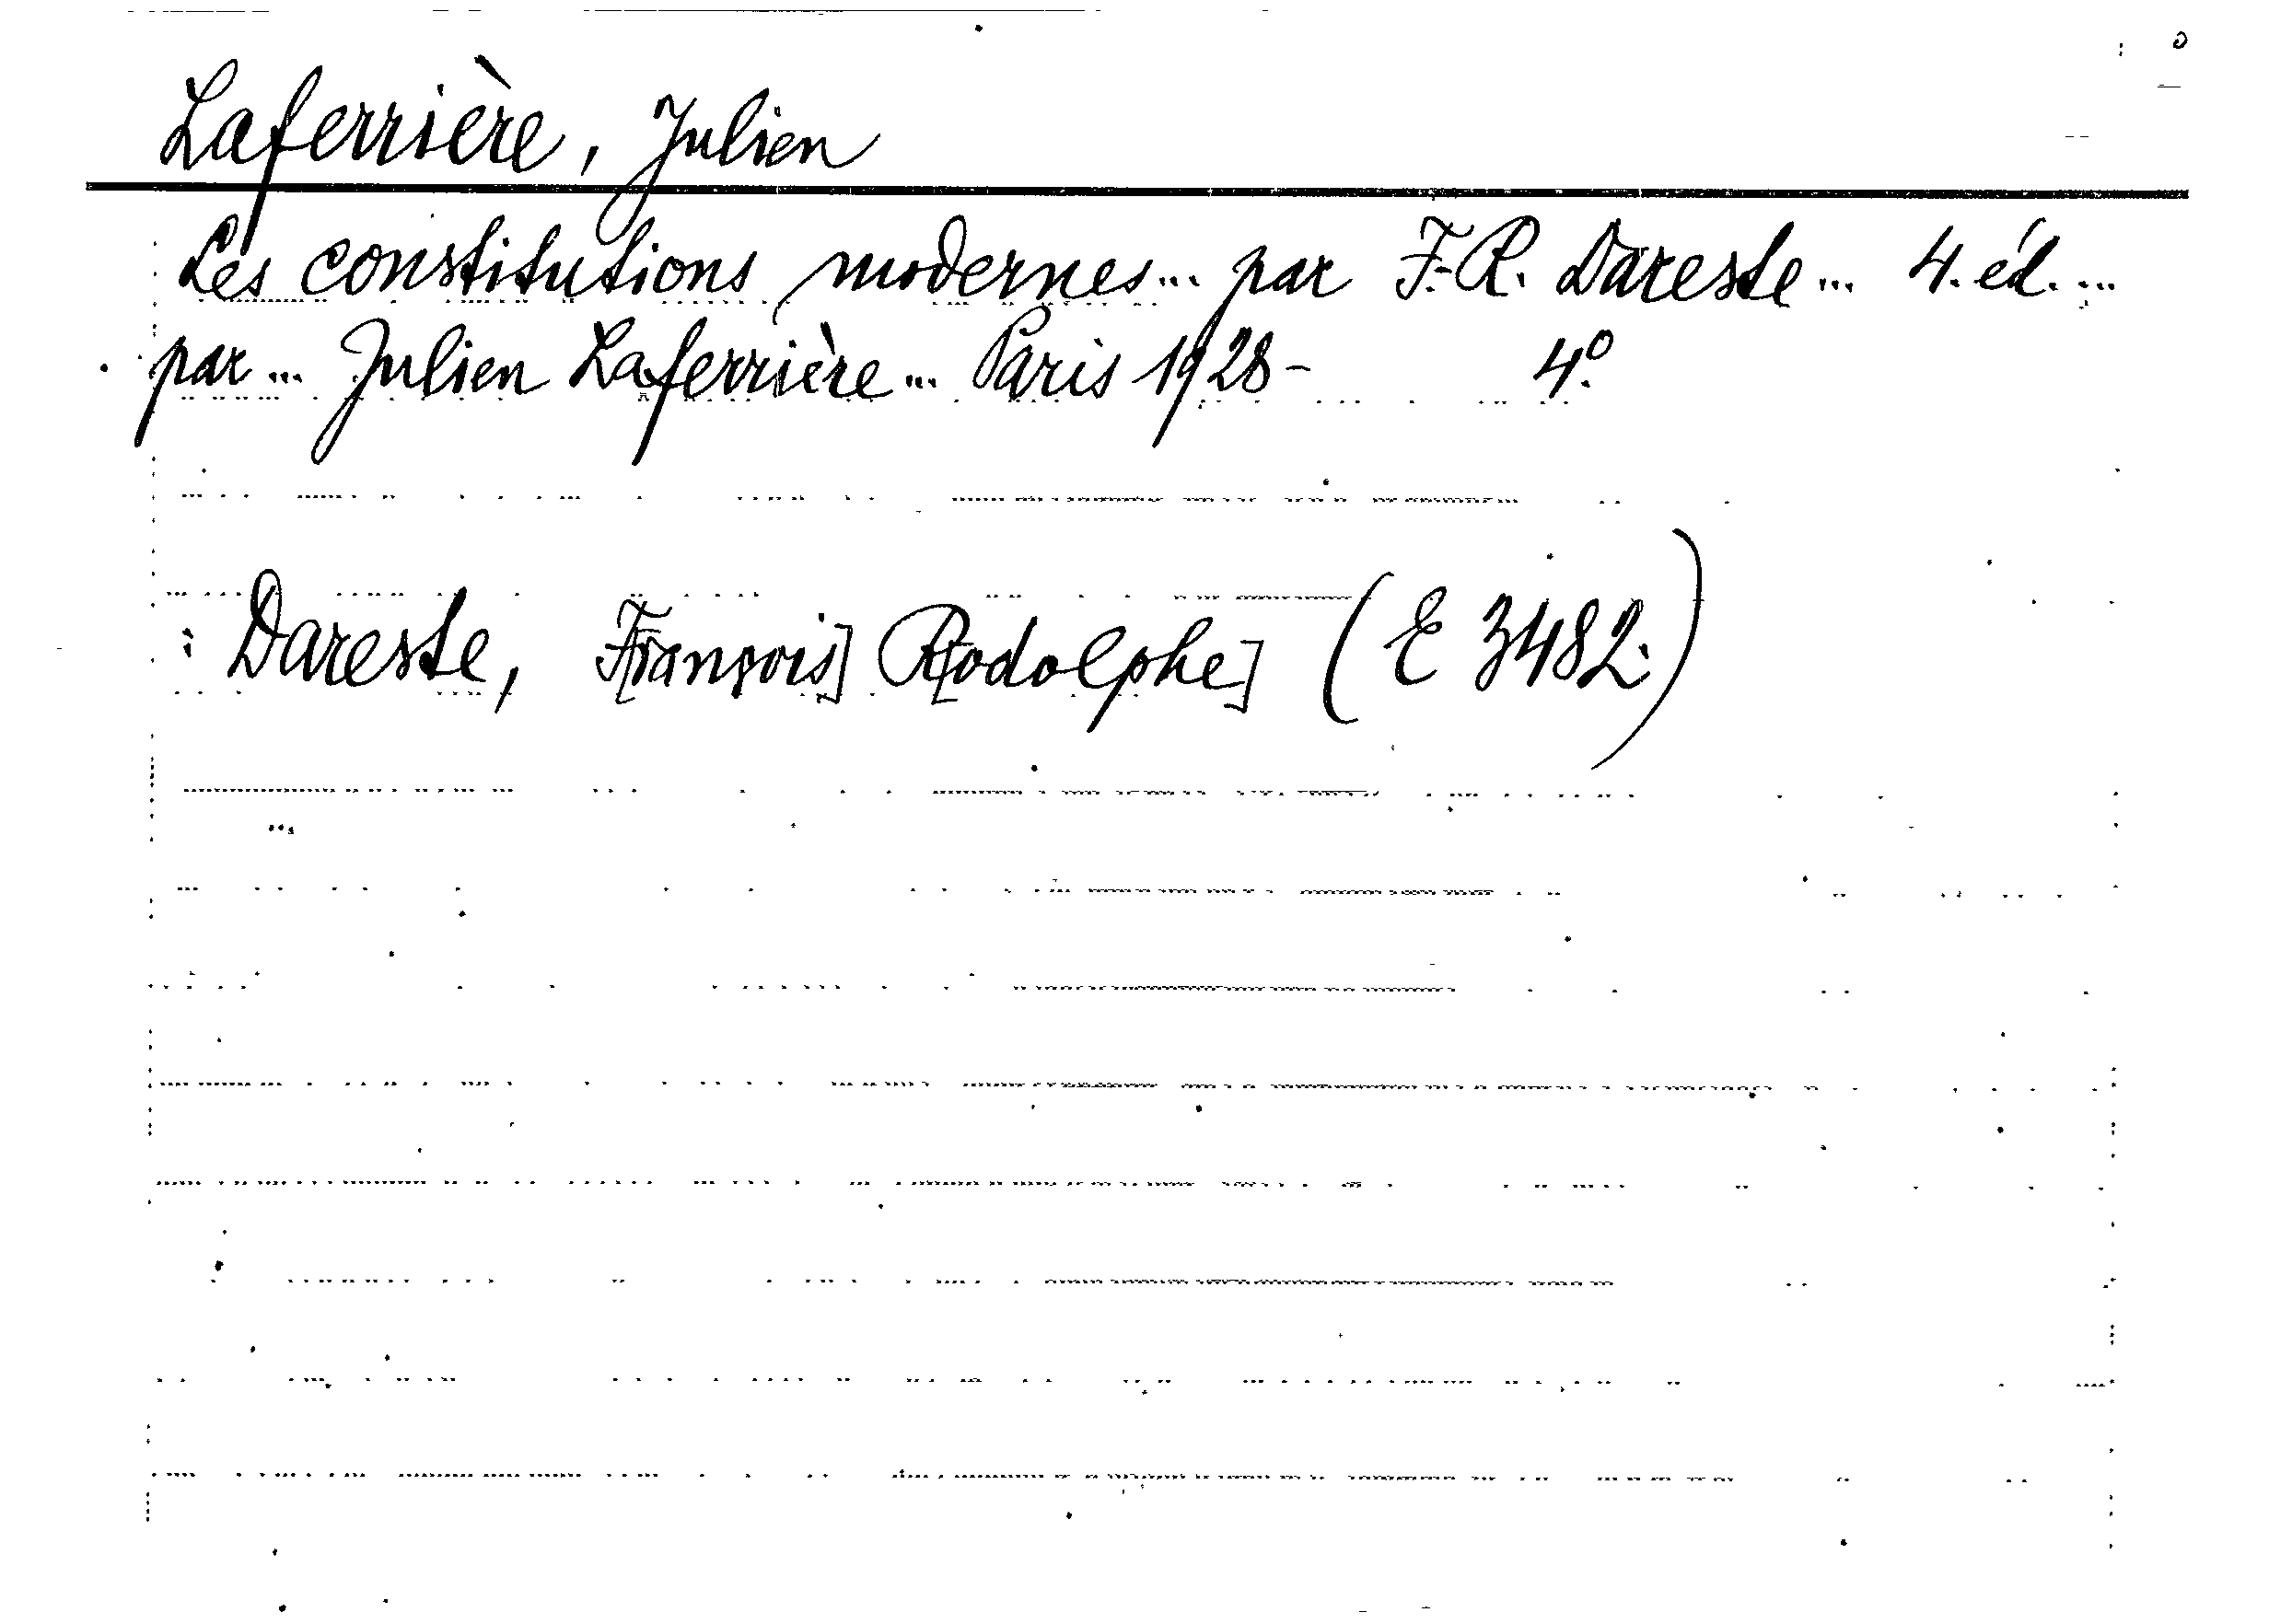 Laferrière, Julien
Les constitutions modernes... par F.-R. Dareste... 4. éd....
par... Julien Laferrière... Paris 1928- 4º.
: Dareste, F[rançois] R[odolphe] (E 3482.)